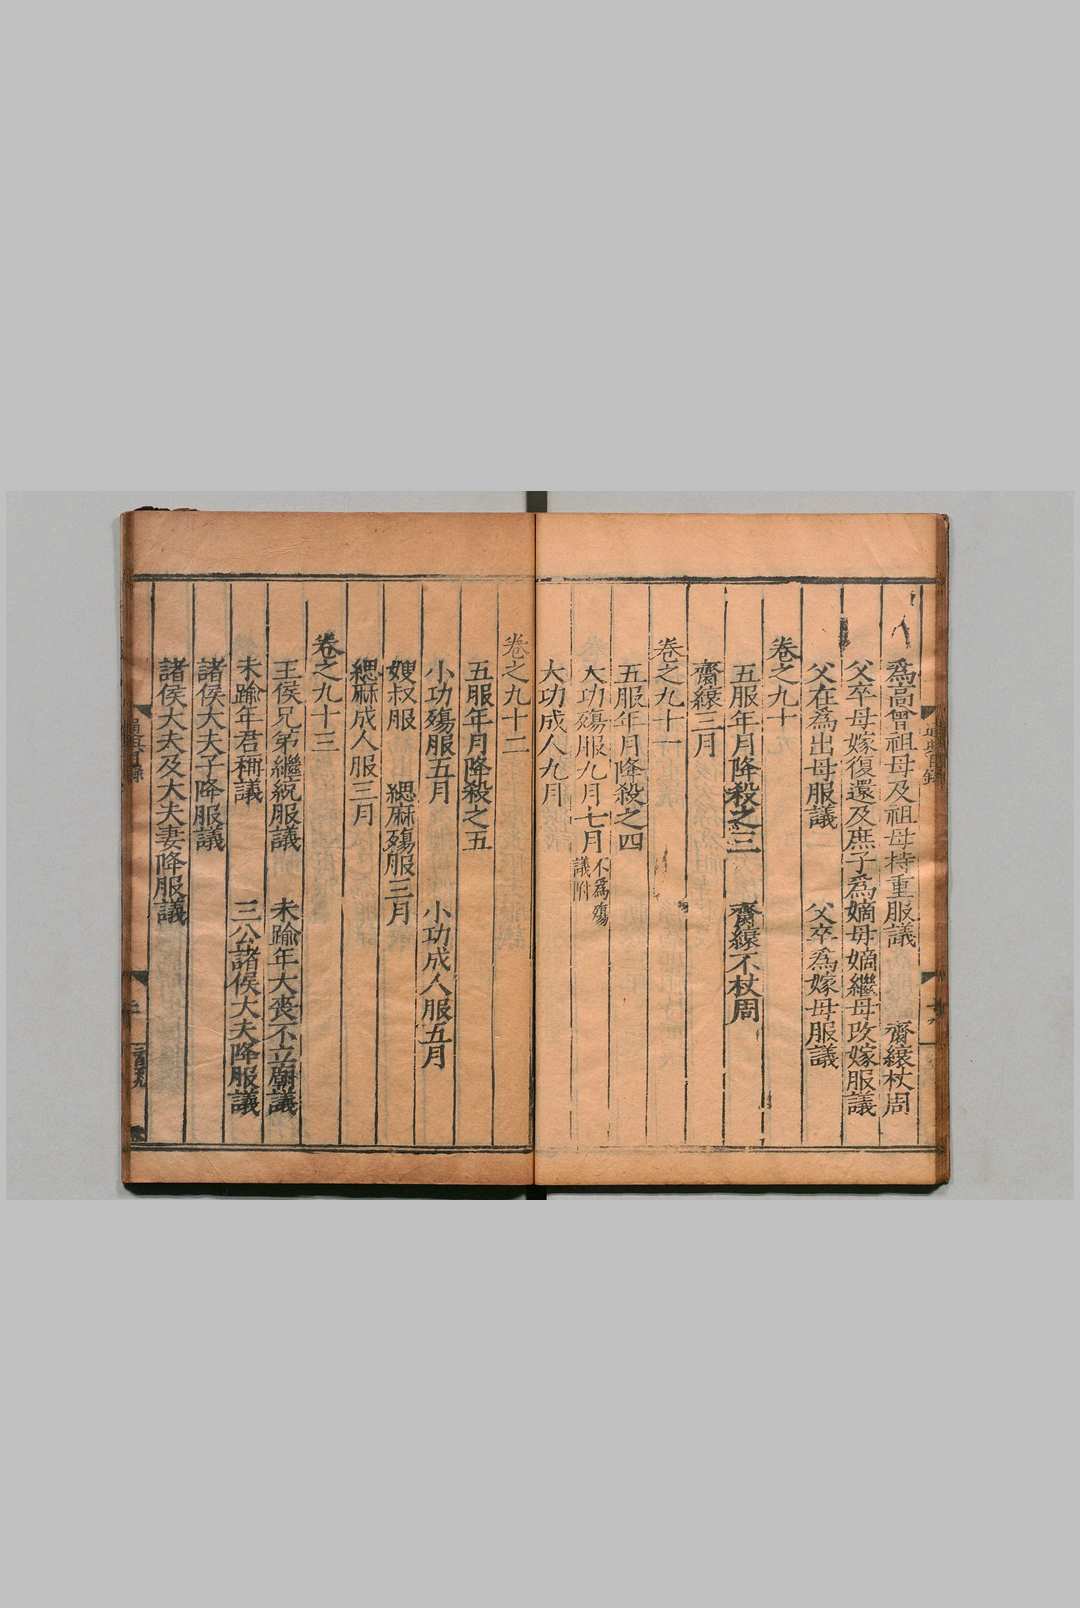 爲高曾祖母及祖母持重服議 齊縗杖周
父卒母嫁復還及庶子爲嫡母嫡繼母改嫁服議
父在爲出母服議 父卒爲嫁母服議
卷之九十
五服年月降殺之三 齊縗不杖周
齊縗三月
卷之九十一
五服年月降殺之四
大功殤服九月七月 不爲殤議附
大功成人九月
卷之九十二
五服年月降殺之五
小功殤服五月 小功成人服五月
嫂叔服 緦麻殤服三月
緦麻成人服三月
卷之九十三
王侯兄弟繼統服議 未踰年大喪不立廟議
未踰年君稱議 三公諸侯大夫降服議
諸侯大夫子降服議
諸侯大夫及大夫妻降服議